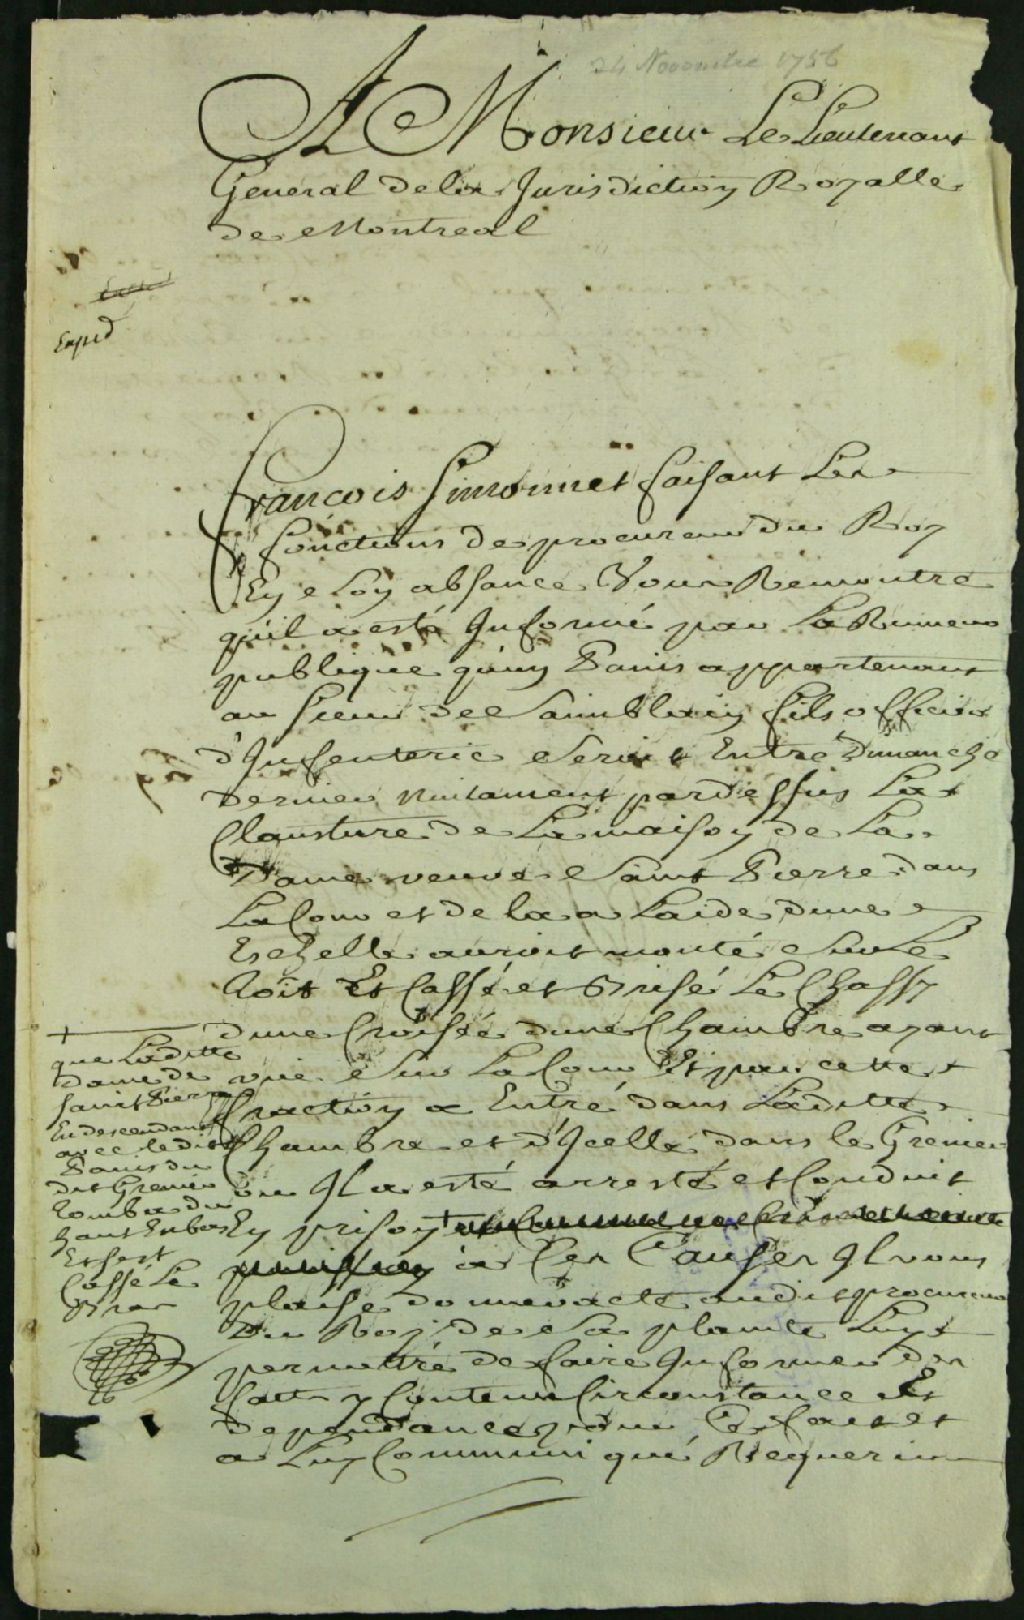 24 Novembre 1756
A Monsieur Le Lieutenant
General dela Jurisdiction Royalle
de Montreal
Expd
François Simonnet faisant Les
fonctions de procureur du Roy
En son absance Vous Remontre
quil a esté Informé par La Rumeur
publique quun Panis appartenant
au sieur de Saintblin fils officier
d'Infenterie seroit Entré Dimanche
dernier nuitament pardessus La
Clausture de La maison de La
Dame veuve Saint Pierre dans
La Cour et de la a Laide dune
Eschelle auroit monté sur Le
Toit Et Cassé et Brisé Le Chassy
dune Croisée dune Chambre ayant
vüe Sur La Cour Et par cette
fraction a Entré dans Laditte
Chambre et d'Icelle dans le Grenier
ou Il a esté arresté et Conduit
En prison +
à Ces Causes Il vous
plaise donner acte audit procureur
du Roy de Sa plainte Luy
permettre de faire Informer des
faits y Contenus Circonstances Et
dependances pour Ce fait et
a Luy Communiqué Requerir
+
que Laditte
dame de
saint Pierre
En descendant
avec ledit
Panis du
dit Grenier
Tomba du
haut Enbas
Et sest
Cassé Le
Bras